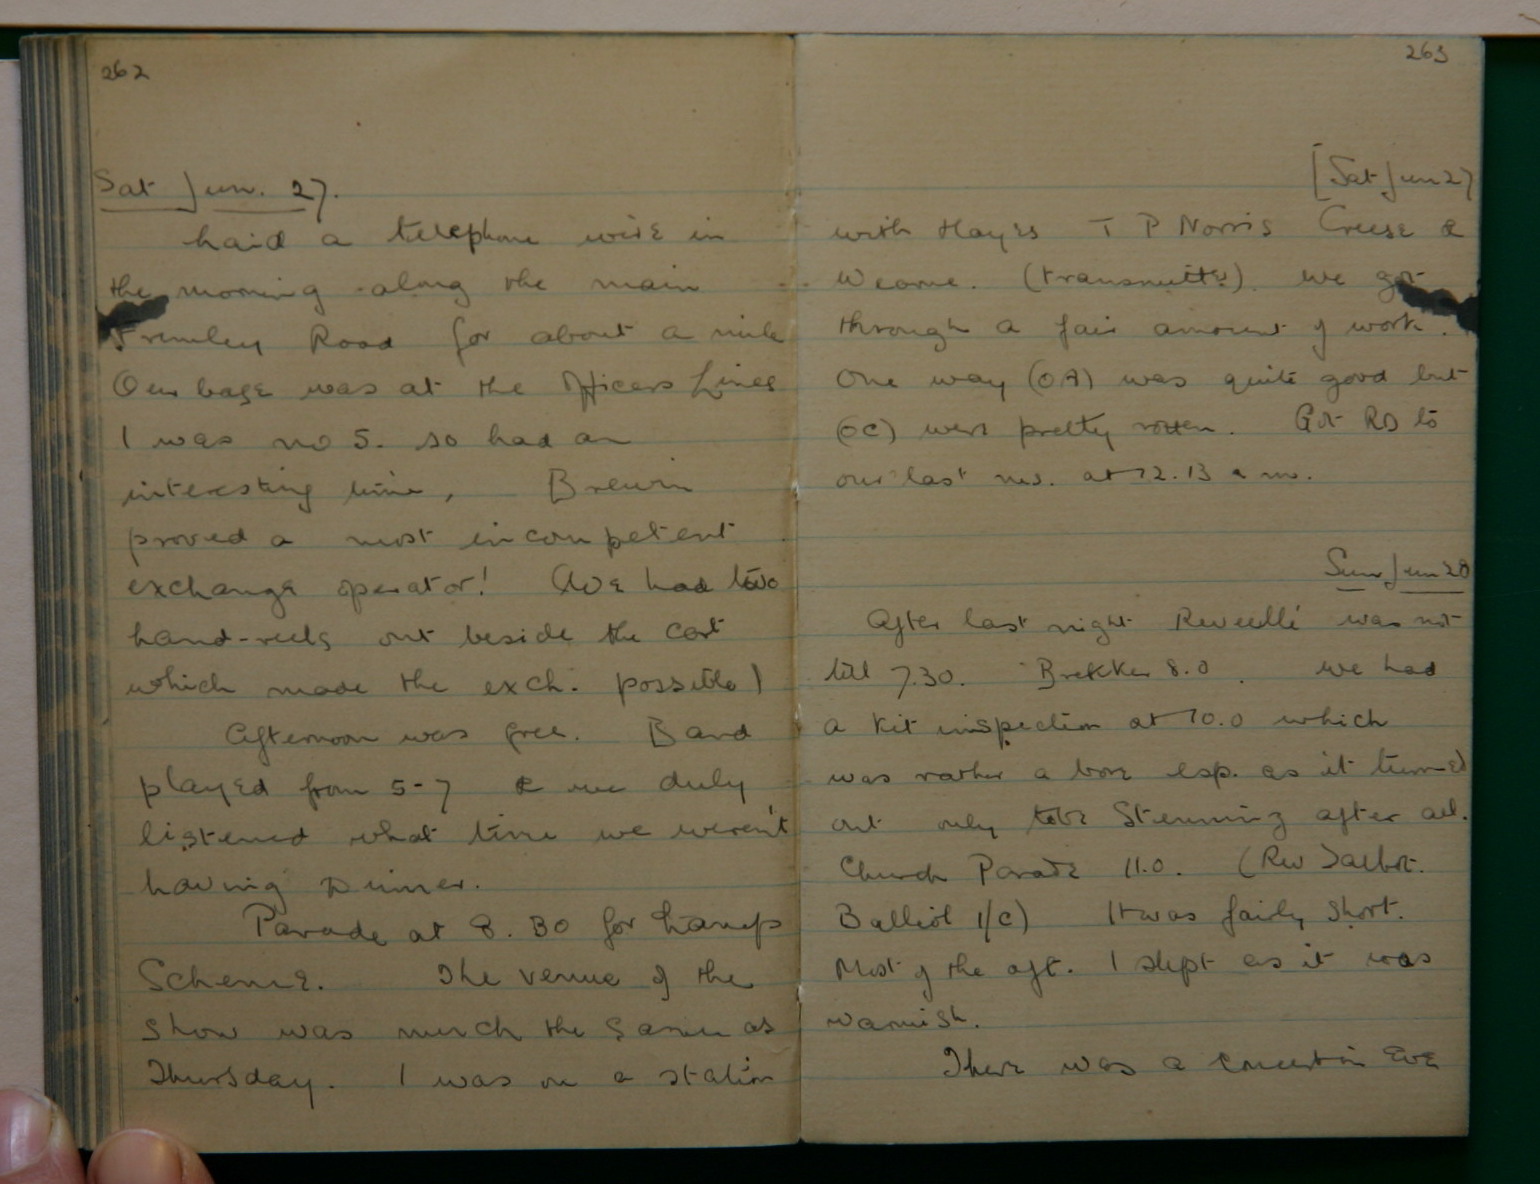 262
Sat Jun. 27.
Laid a telephone wire in
the morning along the main
Frimley Road for about a mile
Our base was at the Officers Lines
I was no 5. so had an
interesting time, Brewin
proved a most incompetent
exchange operator! (We had two
hand-reels out beside the cart
which made the exch. possible)
Afternoon was free. Band
played from 5-7 & we duly
listened what time we weren't
having Dinner.
Parade at 8.30 for Lamps
Scheme. The venue of the
show was much the same as
Thursday. I was on a station
263
[Sat Jun 27
with Hayes T P Norris Creese &
Wearne. (transmitter). We got
through a fair amount of work.
One way (OA) was quite good but
(OC) were pretty rotten. Got RD to
our last mes. at 12.13 a m.
Sun Jun 28
After last night Reveillé was not
till 7.30. Brekker 8.0. We had
a Kit inspection at 10.0 which
was rather a bore esp. as it turned
out only to be Stenning after all.
Church Parade 11.0. (Rev Talbot.
Balliol i/c) It was fairly short.
Most of the aft. I slept as it was
warmish.
There was a concert in Eve